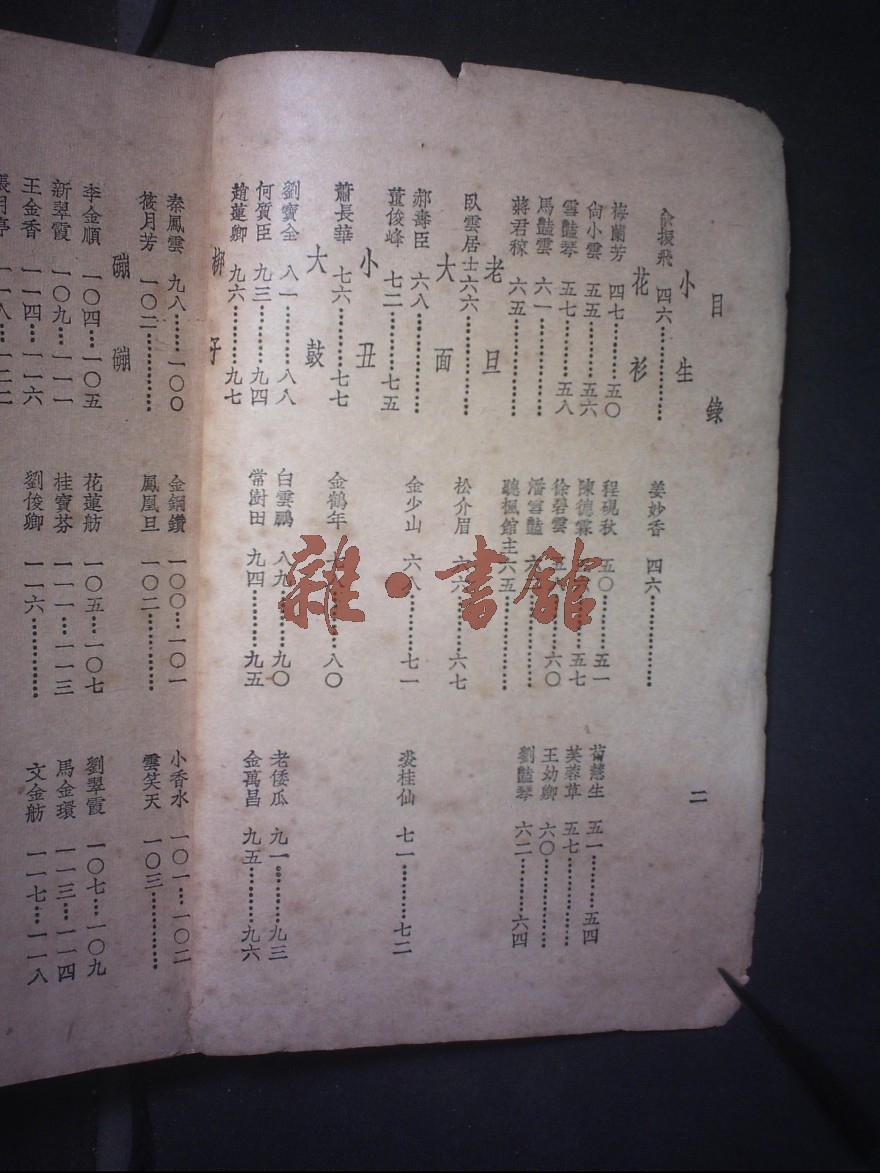 目錄
二
小生
俞振飛 四六…………
姜妙香 四六…………
花衫
梅蘭芳 四七……五〇
程硯秋 五〇……五一
荀慧生 五一……五四
尙小雲 五五……五六
陳德霖 五七
芙蓉草 五七…………
雪艷琴 五七……五八
徐碧雲 六〇
王幼卿 六〇…………
馬艷雲 六一…………
潘雪艷
劉艷琴 六二……六四
蔣君稼 六五…………
聽楓館主 六五…………
老旦
臥雲居士 六六…………
松介眉 六六……六七
大面
郝壽臣 六八…………
金少山 六八……七一
裘桂仙 七一……七二
董俊峰 七二……七五
小丑
蕭長華 七六……七七
金鶴年 七……八〇
大鼓
劉寶全 八一……八八
白雲鵬 八九……九〇
老倭瓜 九一……九三
何質臣 九三……九四
常澍田 九四……九五
金萬昌 九五……九六
趙蓮卿 九六……九七
梆子
秦鳳雲 九八……一〇〇
金鋼鑽 一〇〇…一〇一
小香水 一〇一…一〇二
筱月芳 一〇二…………
鳳凰旦 一〇二…………
雲笑天 一〇三…………
磞磞
李金順 一〇四…一〇五
花蓮舫 一〇五…一〇七
劉翠霞 一〇七…一〇九
新翠霞 一〇九…一一一
桂寶芬 一一一…一一三
馬金環 一一三…一一四
王金香 一一四…一一六
劉俊卿 一一六…………
文金舫 一一七…一一八
一一八…一二二
雜·書館